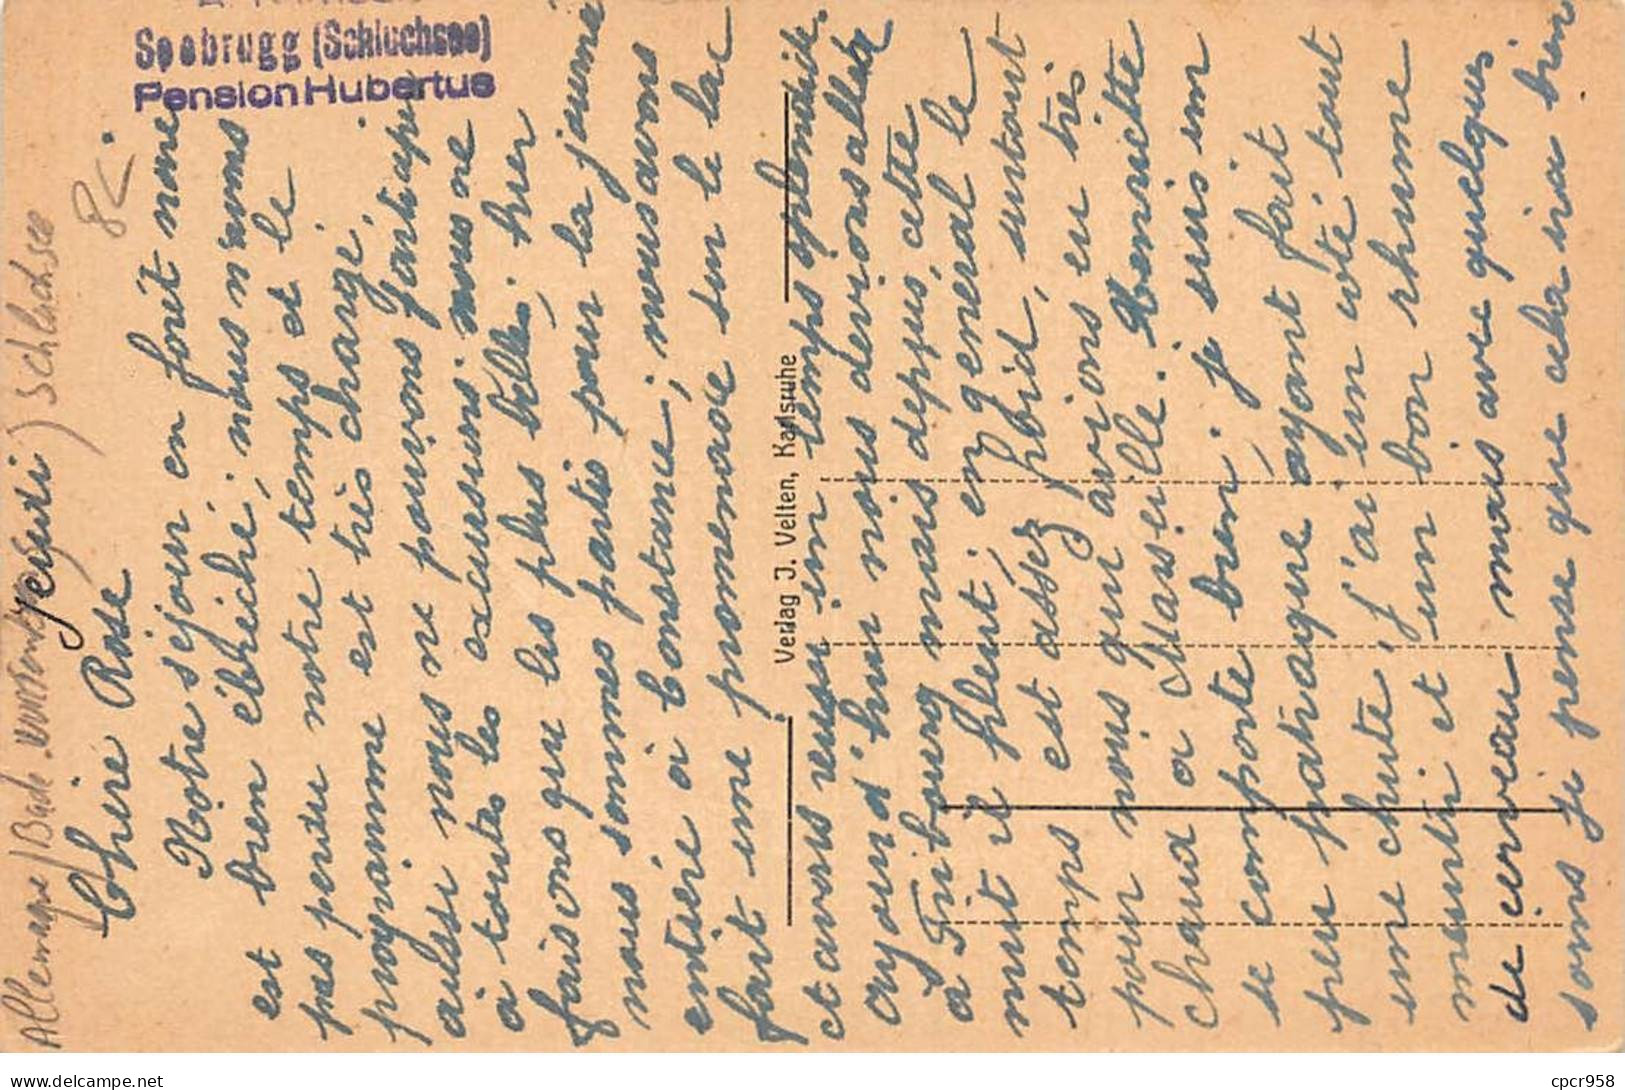 Seebrugg (Schluchsee)
Pension Hubertus
8€
Allemagne / Bade Wurtemberg) Schluchsee
jeudi
Chère Rose
Notre séjour en forêt noire
est bien ébréché, nous n'avons
pas perdu notre temps et le
programme est très changé,
aussi nous ne pouvons participer
à toutes les excursions nous ne
faisons que les plus belles. hier
nous sommes partis pour la journée
entière à Constance; nous avons
fait une promenade sur le lac
et avons eu un temps splendide.
aujourd'hui nous devions aller
à Fribourg mais depuis cette
nuit il pleut; en général le
temps est assez froid, surtout
pour nous qui avions eu très
chaud à Marseille. Henriette
se comporte bien. je suis un
peu patraque ayant fait
une chute, j'ai un côté tout
meurtri et un bon rhume
de cerveau mais avec quelques
soins je pense que cela ira bien
Verlag J. Velten, Karlsruhe
cpcr958